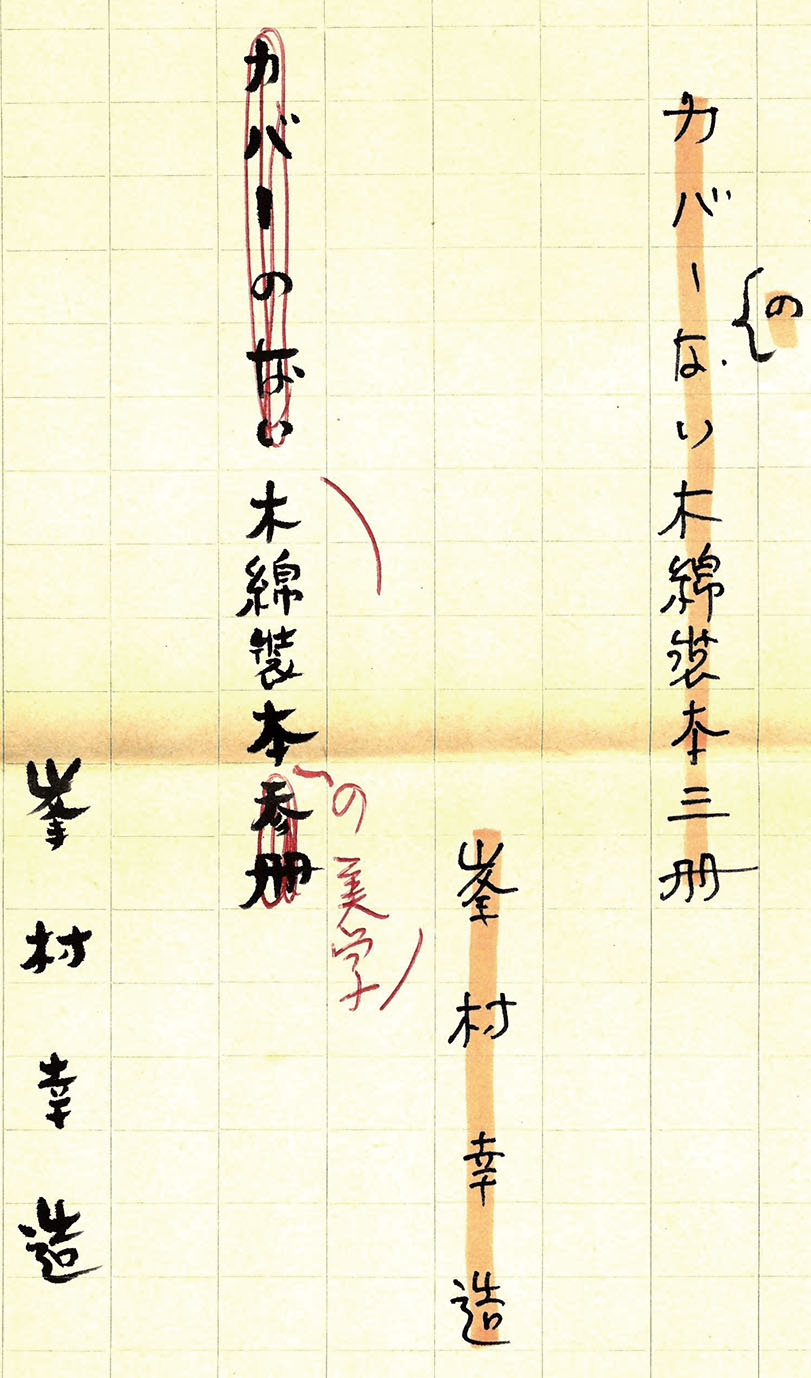 カバーない木綿装本三册
の
峯村幸造
カバーのない木綿裝本参册
の美学
峯村幸造